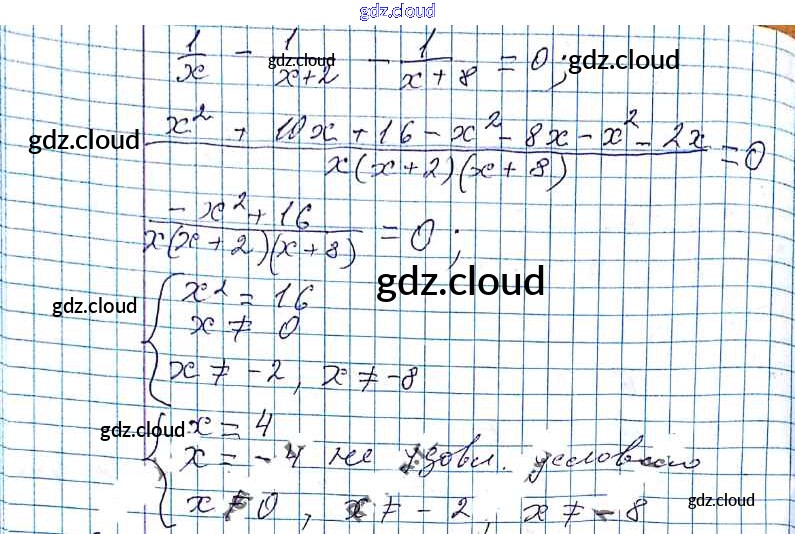 gdz.cloud
1/x - 1/(x+2) - 1/(x+8) = 0; gdz.cloud gdz.cloud
gdz.cloud (x² + 10x + 16 - x² - 8x - x² - 2x)/(x(x+2)(x+8)) = 0
(-x² + 16)/(x(x+2)(x+8)) = 0;
gdz.cloud
gdz.cloud { x² = 16
x ≠ 0
x ≠ -2, x ≠ -8
gdz.cloud { x = 4
x = -4 не удовл. условию
x ≠ 0, x ≠ -2, x ≠ -8 gdz.cloud